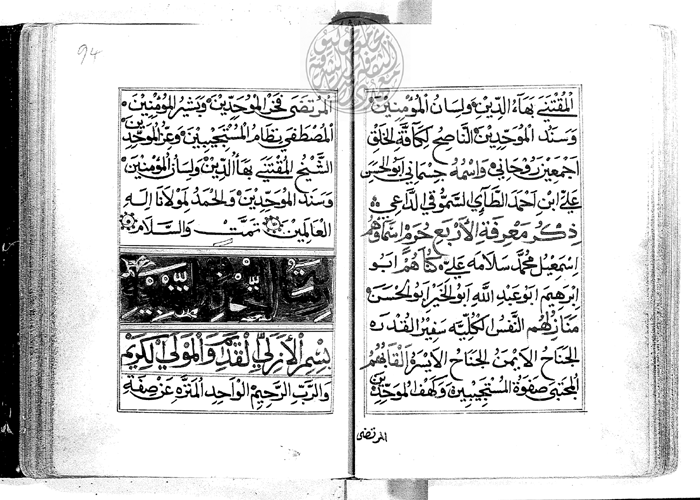 المقتنى بهاء الدين ولسان المؤمنين
وسند الموحدين الناصح لكافة الخلق
اجمعين روحاني واسمه جسماني ابو الحسن
علي ابن احمد الطآي السموقي الداعي
ذكر معرفة الأربع حرم اسماوهم
اسمعيل محمد سلامه علي كناهم ابو
ابرهيم ابو عبد الله ابو الخير ابو الحسن
منازلهم النفس الكلية سفير القدره
الجناح الايمن الجناح الايسر القابهم
المجتبى صفوة المستجيبين وكهف الموحدين
المرتضى
94
المرتضى فخر الموحدين وبشير المؤمنين
المصطفى نظام المستجيبين وعز الموحدين
الشيخ المقتنى بهاء الدين ولسان المؤمنين
وسند الموحدين والحمد لمولانا اله
العالمين تمت والسلام
بسم الأزلي القديم والمولى الكريم
والرب الرحيم الواحد المنزه عن صفة